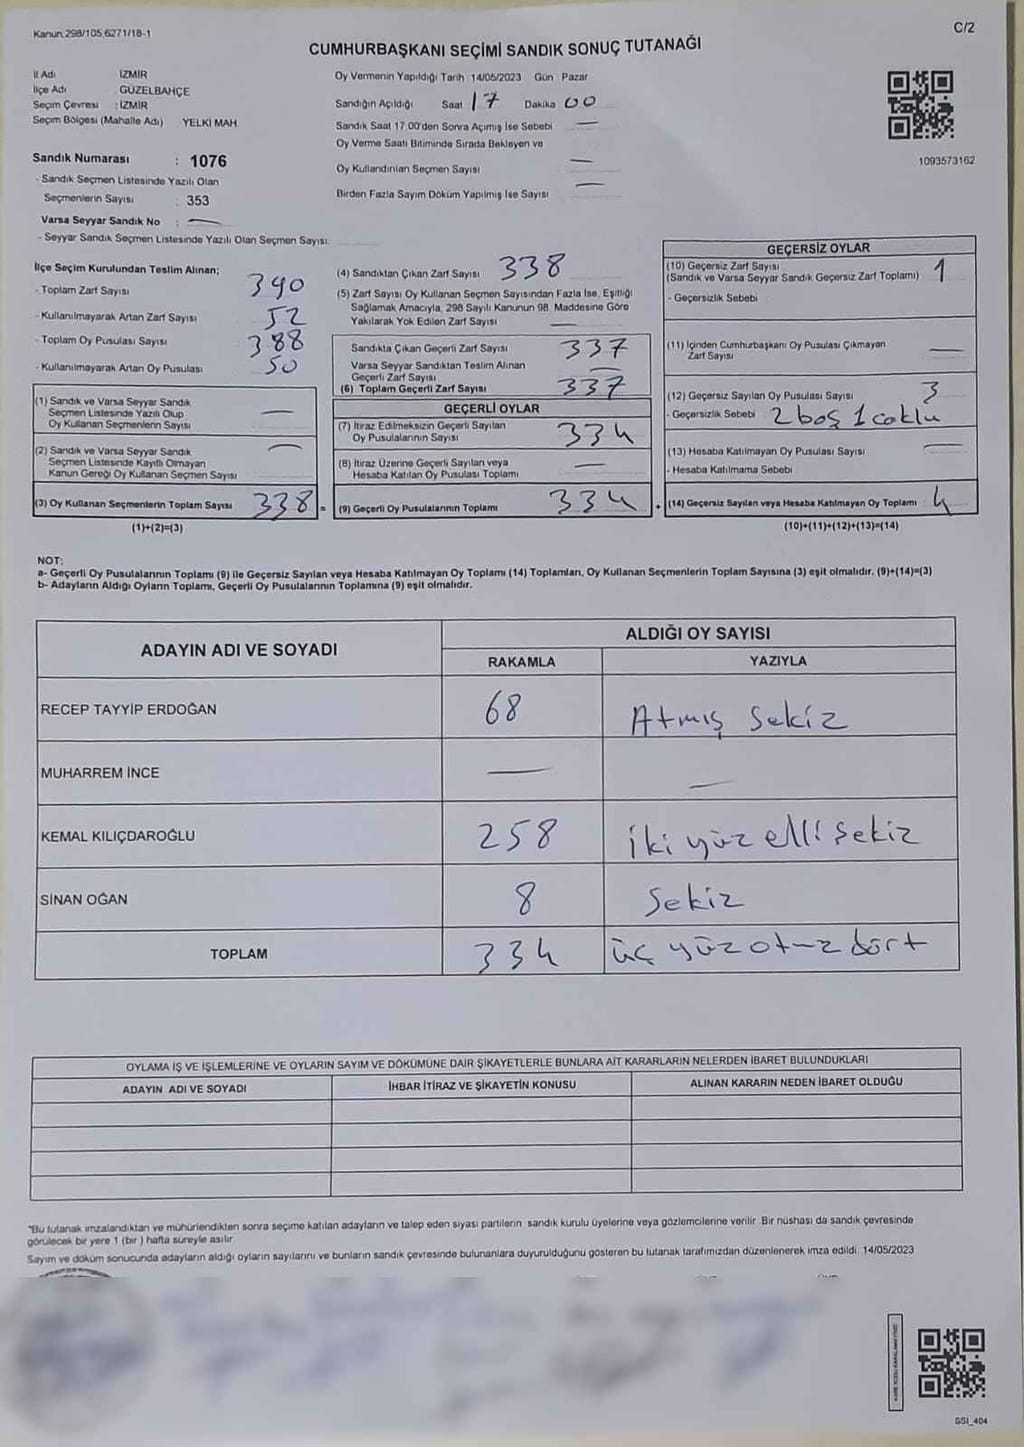 Kanun:298/105,6271/18-1
C/2
CUMHURBAŞKANI SEÇİMİ SANDIK SONUÇ TUTANAĞI
İl Adı İZMİR
İlçe Adı GÜZELBAHÇE
Seçim Çevresi : İZMİR
Seçim Bölgesi (Mahalle Adı) YELKİ MAH.
Sandık Numarası : 1076
- Sandık Seçmen Listesinde Yazılı Olan
Seçmenlerin Sayısı : 353
Varsa Seyyar Sandık No : —
- Seyyar Sandık Seçmen Listesinde Yazılı Olan Seçmen Sayısı:
Oy Vermenin Yapıldığı Tarih 14/05/2023 Gün Pazar
Sandığın Açıldığı Saat 17 Dakika 00
Sandık Saat 17.00'den Sonra Açımış İse Sebebi —
Oy Verme Saati Bitiminde Sırada Bekleyen ve
Oy Kullandırılan Seçmen Sayısı —
Birden Fazla Sayım Döküm Yapılmış İse Sayısı —
1093573162
İlçe Seçim Kurulundan Teslim Alınan;
- Toplam Zarf Sayısı 390
- Kullanılmayarak Artan Zarf Sayısı 52
- Toplam Oy Pusulası Sayısı 388
- Kullanılmayarak Artan Oy Pusulası 50
(1) Sandık ve Varsa Seyyar Sandık
Seçmen Listesinde Yazılı Olup
Oy Kullanan Seçmenlerin Sayısı —
(2) Sandık ve Varsa Seyyar Sandık
Seçmen Listesinde Kayıtlı Olmayan
Kanun Gereği Oy Kullanan Seçmen Sayısı —
(3) Oy Kullanan Seçmenlerin Toplam Sayısı 338 =
(1)+(2)=(3)
(4) Sandıktan Çıkan Zarf Sayısı 338
(5) Zarf Sayısı Oy Kullanan Seçmen Sayısından Fazla İse, Eşitliği
Sağlamak Amacıyla, 298 Sayılı Kanunun 98. Maddesine Göre
Yakılarak Yok Edilen Zarf Sayısı —
Sandıkta Çıkan Geçerli Zarf Sayısı 337
Varsa Seyyar Sandıktan Teslim Alınan
Geçerli Zarf Sayısı —
(6) Toplam Geçerli Zarf Sayısı 337
GEÇERLİ OYLAR
(7) İtiraz Edilmeksizin Geçerli Sayılan
Oy Pusulalarının Sayısı 334
(8) İtiraz Üzerine Geçerli Sayılan veya
Hesaba Katılan Oy Pusulası Toplamı —
(9) Geçerli Oy Pusulalarının Toplamı 334 +
GEÇERSİZ OYLAR
(10) Geçersiz Zarf Sayısı
(Sandık ve Varsa Seyyar Sandık Geçersiz Zarf Toplamı) 1
- Geçersizlik Sebebi
(11) İçinden Cumhurbaşkanı Oy Pusulası Çıkmayan
Zarf Sayısı —
(12) Geçersiz Sayılan Oy Pusulası Sayısı 3
- Geçersizlik Sebebi 2 boş 1 coklu
(13) Hesaba Katılmayan Oy Pusulası Sayısı —
- Hesaba Katılmama Sebebi
(14) Geçersiz Sayılan veya Hesaba Katılmayan Oy Toplamı 4
(10)+(11)+(12)+(13)=(14)
NOT:
a- Geçerli Oy Pusulalarının Toplamı (9) ile Geçersiz Sayılan veya Hesaba Katılmayan Oy Toplamı (14) Toplamları, Oy Kullanan Seçmenlerin Toplam Sayısına (3) eşit olmalıdır. (9)+(14)=(3)
b- Adayların Aldığı Oyların Toplamı, Geçerli Oy Pusulalarının Toplamına (9) eşit olmalıdır.
ADAYIN ADI VE SOYADI
ALDIĞI OY SAYISI
RAKAMLA YAZIYLA
RECEP TAYYİP ERDOĞAN 68 Atmış sekiz
MUHARREM İNCE — —
KEMAL KILIÇDAROĞLU 258 iki yüz elli sekiz
SİNAN OĞAN 8 Sekiz
TOPLAM 334 üç yüz otuz dört
OYLAMA İŞ VE İŞLEMLERİNE VE OYLARIN SAYIM VE DÖKÜMÜNE DAİR ŞİKAYETLERLE BUNLARA AİT KARARLARIN NELERDEN İBARET BULUNDUKLARI
ADAYIN ADI VE SOYADI İHBAR İTİRAZ VE ŞİKAYETİN KONUSU ALINAN KARARIN NEDEN İBARET OLDUĞU
*Bu tutanak imzalandıktan ve mühürlendikten sonra seçime katılan adayların ve talep eden siyasi partilerin sandık kurulu üyelerine veya gözlemcilerine verilir. Bir nüshası da sandık çevresinde
görülecek bir yere 1 (bir ) hafta süreyle asılır.
Sayım ve döküm sonucunda adayların aldığı oyların sayılarını ve bunların sandık çevresinde bulunanlara duyurulduğunu gösteren bu tutanak tarafımızdan düzenlenerek imza edildi. 14/05/2023
SSİ_404